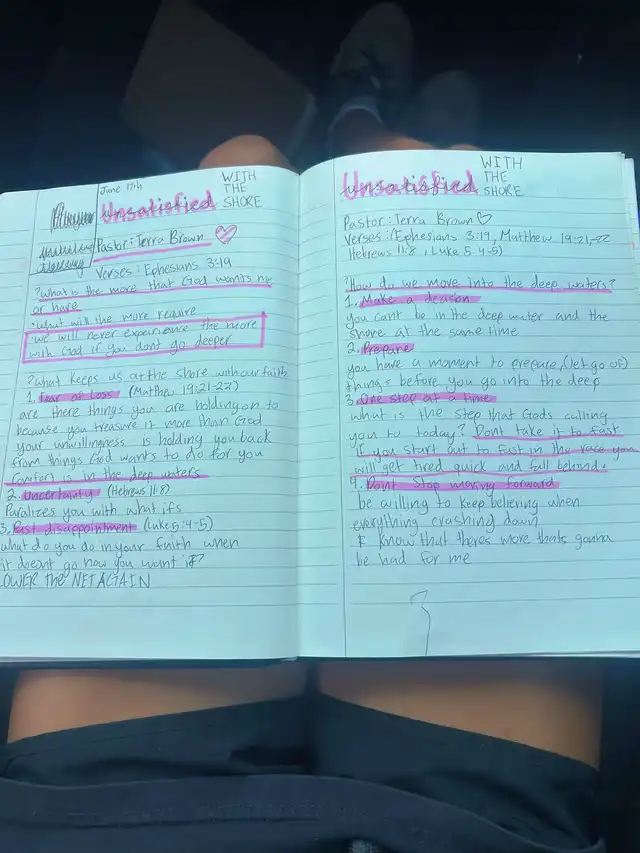 June 17th
Unsatisfied
WITH
THE
SHORE
Pastor: Terra Brown
Verses: Ephesians 3:19
? What is the more that God wants me
or have
• What will the more require
• we will never experience the more
with God if you dont go deeper
? What keeps us at the shore with our faith
1. Fear of Loss (Matthew 19:21-22)
are there things you are holding on to
because you treasure it more than God
your unwillingness is holding you back
from things God wants to do for you
Comfort is in the deep waters
2. Uncertainty (Hebrews 11:8)
Paralizes you with what ifs
3. Past disappointment (Luke 5:4-5)
what do you do in your faith when
it doesnt go how you want it?
LOWER THE NET AGAIN
Unsatisfied
WITH
THE
SHORE
Pastor: Terra Brown
Verses: Ephesians 3:19, Matthew 19:21-22
Hebrews 11:8, Luke 5:4-5)
? How do we move into the deep waters?
1. Make a decision
you cant be in the deep water and the
shore at the same time
2. Prepare
you have a moment to prepare, (let go of)
things before you go into the deep
3. One step at a time
what is the step that Gods calling
you to today? Dont take it to fast
if you start out to fast in the race you
will get tired quick and fall behind.
4. Dont stop moving forward
be willing to keep believing when
everything crashing down
& know that theres more thats gonna
be had for me